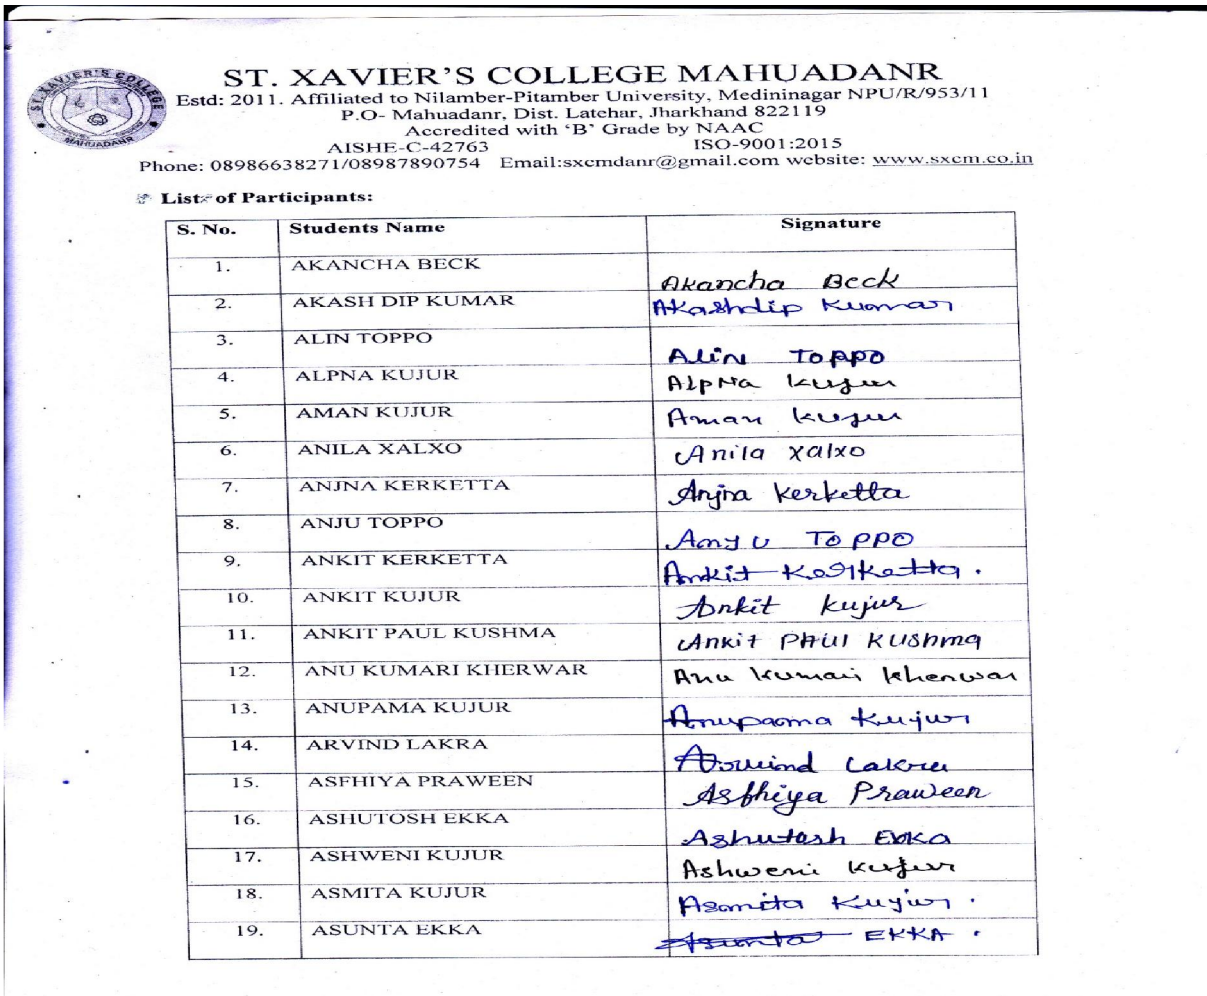 ST. XAVIER'S COLLEGE
MAHUADANR
ST. XAVIER'S COLLEGE MAHUADANR
Estd: 2011. Affiliated to Nilamber-Pitamber University, Medininagar NPU/R/953/11
P.O- Mahuadanr, Dist. Latehar, Jharkhand 822119
Accredited with 'B' Grade by NAAC
AISHE-C-42763 ISO-9001:2015
Phone: 08986638271/08987890754 Email:sxcmdanr@gmail.com website: www.sxcm.co.in
List of Participants:
S. No. Students Name Signature
1. AKANCHA BECK Akancha Beck
2. AKASH DIP KUMAR Akashdip Kumar
3. ALIN TOPPO Alin Toppo
4. ALPNA KUJUR Alpna Kujur
5. AMAN KUJUR Aman Kujur
6. ANILA XALXO Anila Xalxo
7. ANJNA KERKETTA Anjna Kerketta
8. ANJU TOPPO Anju Toppo
9. ANKIT KERKETTA Ankit Kerketta.
10. ANKIT KUJUR Ankit Kujur
11. ANKIT PAUL KUSHMA Ankit Paul Kushma
12. ANU KUMARI KHERWAR Anu Kumari Kherwar
13. ANUPAMA KUJUR Anupama Kujur
14. ARVIND LAKRA Arvind Lakra
15. ASFHIYA PRAWEEN Asfhiya Praween
16. ASHUTOSH EKKA Ashutosh Ekka
17. ASHWENI KUJUR Ashweni Kujur
18. ASMITA KUJUR Asmita Kujur.
19. ASUNTA EKKA Asunta EKKA.